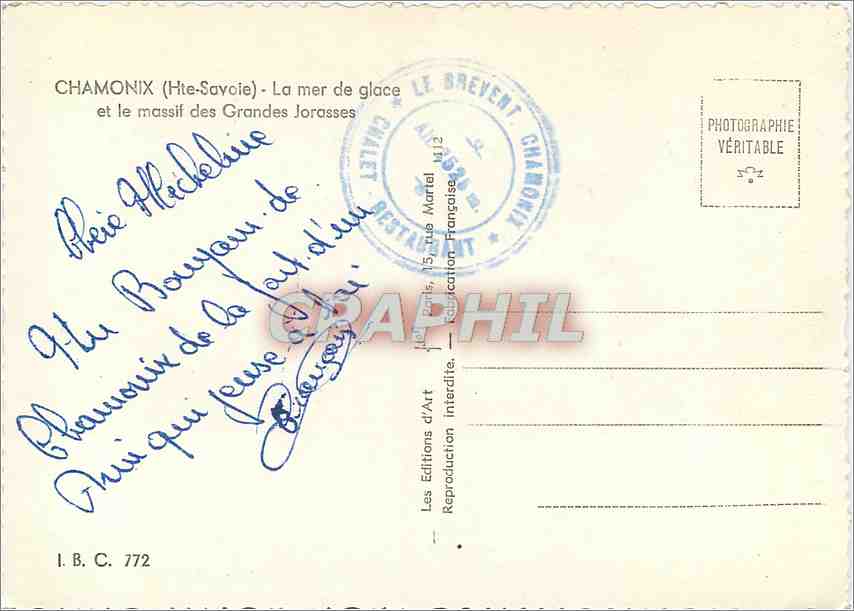 CHAMONIX (Hte-Savoie) - La mer de glace
et le massif des Grandes Jorasses
LE BREVENT. CHAMONIX
CHALET - RESTAURANT
Alt. 2525 m.
PHOTOGRAPHIE
VÉRITABLE
Chère Micheline
Un Bonjour de
Chamonix de la part d'un
Ami qui pense à Toi
CPARPHIL
Les Editions d'Art Paris, 15, rue Martel M12
Reproduction interdite. — Fabrication Française.
I. B. C. 772